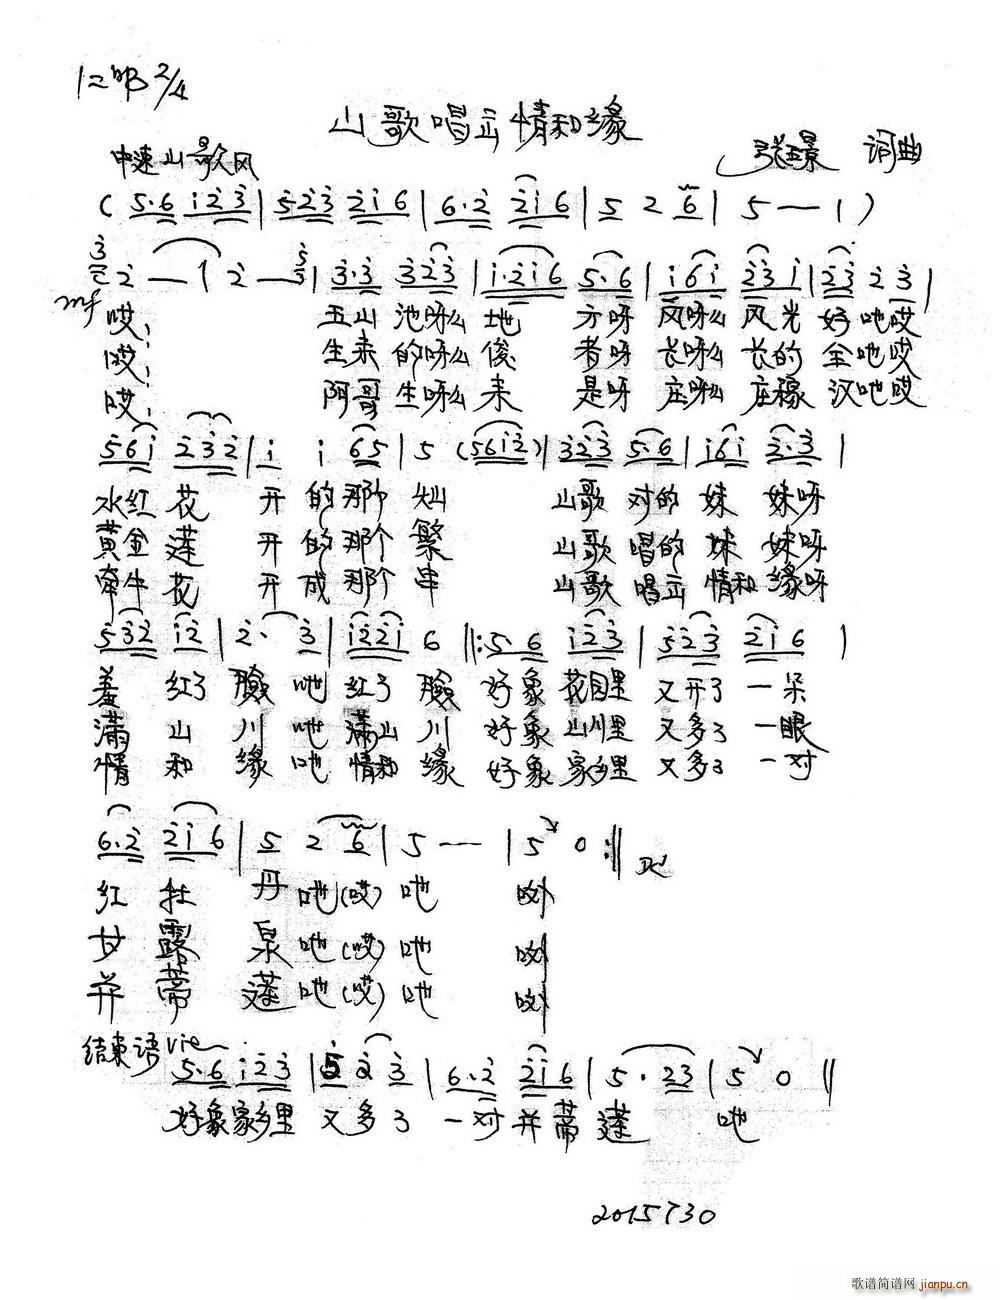 1=bB 2/4
山歌唱出情和缘
中速山歌风 张璟 词曲
( 5·6 i23 | 523 2i6 | 6·2 2i6 | 5 2 6 | 5 — — 1 )
2 — 1 2 — | 3·3 323 | i·2i6 5·6 | i6i 23i | 23 2 3 |
mf 哎: 五山池呀么地 方呀 风呀么 风光 好吔哎
哎: 生来的呀么俊 者呀 长呀么 长的 全吔哎
哎: 阿哥生呀么来 是呀 庄呀么 庄稼 汉吔哎
56i 232 | i i 65 | 5 (56i2) | 323 5·6 | i6i 2·3 |
水红花 开的那个灿 山歌 对的 妹 妹呀
黄金莲 开的那个繁 山歌 唱的 妹 妹呀
牵牛花 开成那个串 山歌 唱出 情和 缘呀
532 i2 | 2· 3 | i22i 6 ‖: 5·6 i23 | 523 2i6 |
羞 红了 脸 吔 红了 脸 好象 花园里 又开了 一朵
满 山 川 吔 满山 川 好象 山川里 又多了 一眼
情 和 缘 吔 情和 缘 好象 家乡里 又多了 一对
6·2 2i6 | 5 2 6 | 5 — — | 5 0 :‖ DC
红 牡 丹 吔(哎)吔 呦
甘 露 泉 吔(哎)吔 呦
并 蒂 莲 吔(哎)吔 呦
结束语
5·6 i23 | 5 2 3 | 6·2 2i6 | 5·23 | 5 0 ‖
好象家乡里 又多了 一对并蒂莲 吔
2015730
歌谱简谱网
jianpu.cn